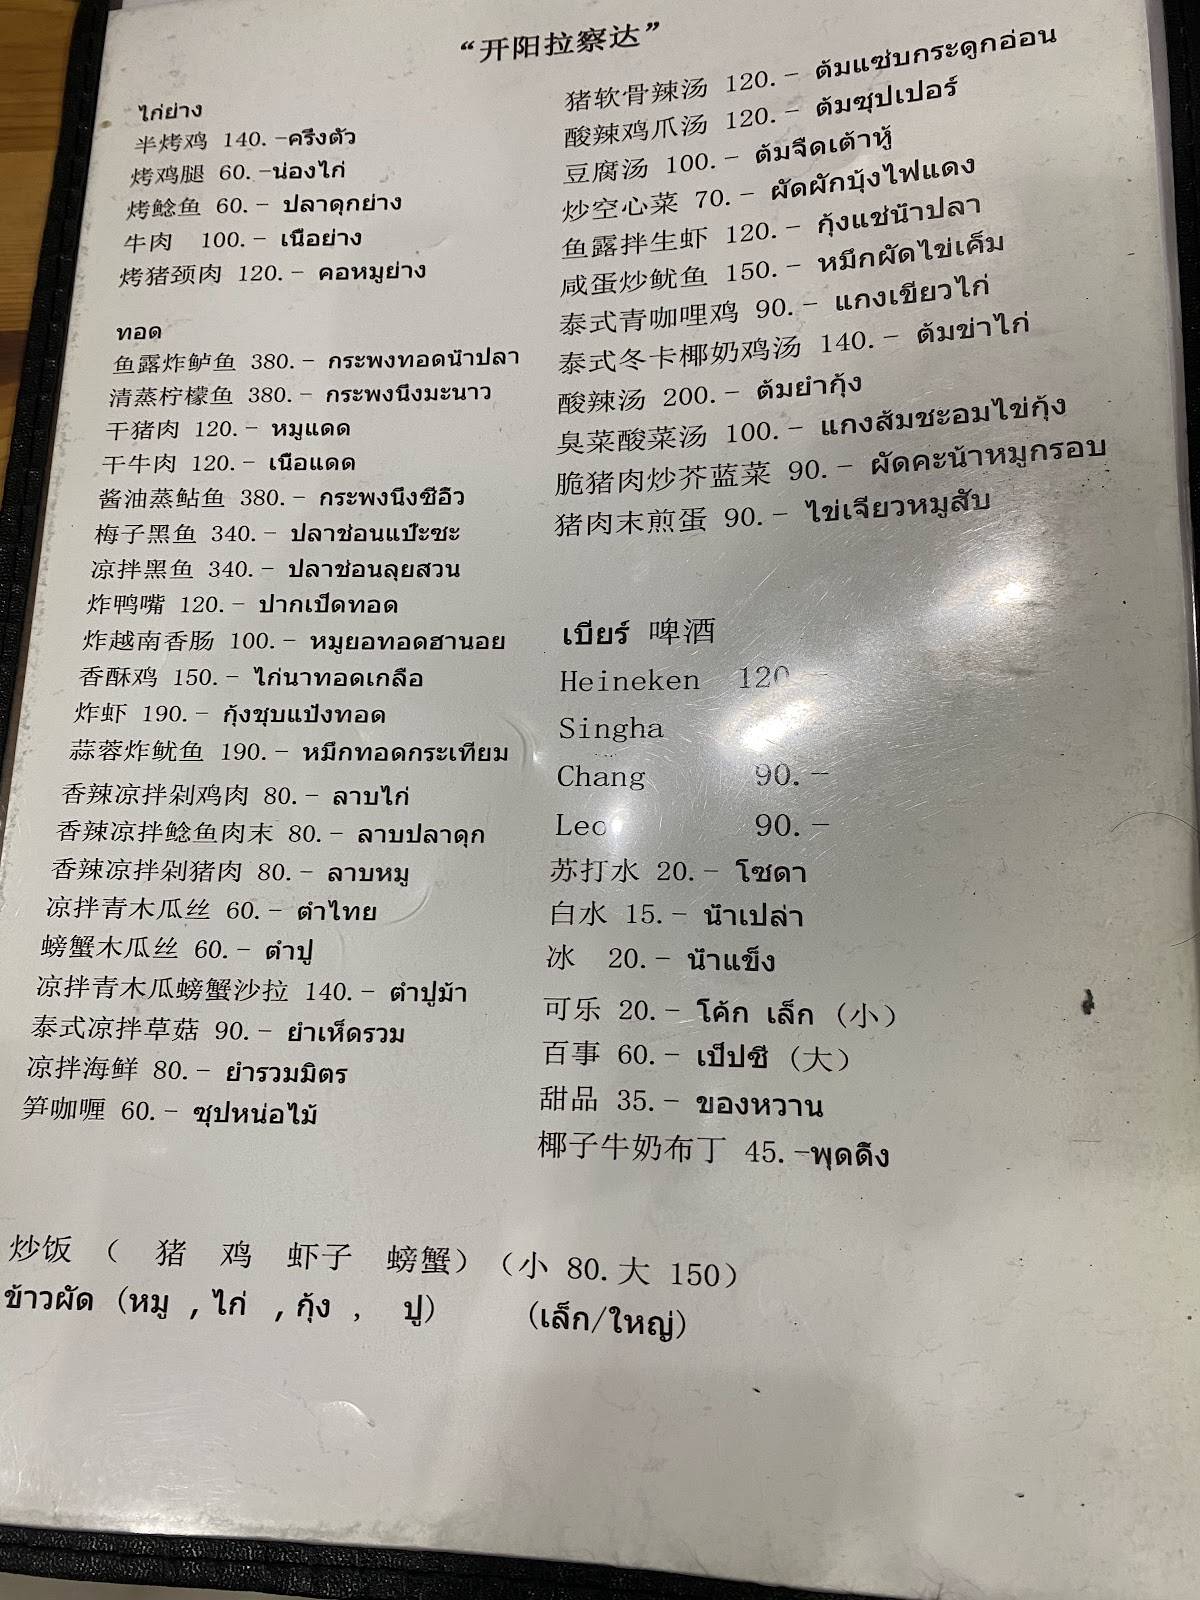 “开阳拉察达”
ไก่ย่าง
半烤鸡 140.-ครึ่งตัว
烤鸡腿 60.-น่องไก่
烤鲶鱼 60.- ปลาดุกย่าง
牛肉 100.- เนื้อย่าง
烤猪颈肉 120.- คอหมูย่าง
ทอด
鱼露炸鲈鱼 380.- กระพงทอดน้ำปลา
清蒸柠檬鱼 380.- กระพงนึ่งมะนาว
干猪肉 120.- หมูแดด
干牛肉 120.- เนื้อแดด
酱油蒸鲇鱼 380.- กระพงนึ่งซีอิ๊ว
梅子黑鱼 340.- ปลาช่อนแป๊ะซะ
凉拌黑鱼 340.- ปลาช่อนลุยสวน
炸鸭嘴 120.- ปากเป็ดทอด
炸越南香肠 100.- หมูยอทอดฮานอย
香酥鸡 150.- ไก่นาทอดเกลือ
炸虾 190.- กุ้งชุบแป้งทอด
蒜蓉炸鱿鱼 190.- หมึกทอดกระเทียม
香辣凉拌剁鸡肉 80.- ลาบไก่
香辣凉拌鲶鱼肉末 80.- ลาบปลาดุก
香辣凉拌剁猪肉 80.- ลาบหมู
凉拌青木瓜丝 60.- ตำไทย
螃蟹木瓜丝 60.- ตำปู
凉拌青木瓜螃蟹沙拉 140.- ตำปูม้า
泰式凉拌草菇 90.- ยำเห็ดรวม
凉拌海鲜 80.- ยำรวมมิตร
笋咖喱 60.- ซุปหน่อไม้
猪软骨辣汤 120.- ต้มแซ่บกระดูกอ่อน
酸辣鸡爪汤 120.- ต้มซุปเปอร์
豆腐汤 100.- ต้มจืดเต้าหู้
炒空心菜 70.- ผัดผักบุ้งไฟแดง
鱼露拌生虾 120.- กุ้งแช่น้ำปลา
咸蛋炒鱿鱼 150.- หมึกผัดไข่เค็ม
泰式青咖哩鸡 90.- แกงเขียวไก่
泰式冬卡椰奶鸡汤 140.- ต้มข่าไก่
酸辣汤 200.- ต้มยำกุ้ง
臭菜酸菜汤 100.- แกงส้มชะอมไข่กุ้ง
脆猪肉炒芥蓝菜 90.- ผัดคะน้าหมูกรอบ
猪肉末煎蛋 90.- ไข่เจียวหมูสับ
เบียร์ 啤酒
Heineken 120.-
Singha
Chang 90.-
Leo 90.-
苏打水 20.- โซดา
白水 15.- น้ำเปล่า
冰 20.- น้ำแข็ง
可乐 20.- โค้ก เล็ก (小)
百事 60.- เป็ปซี่ (大)
甜品 35.- ของหวาน
椰子牛奶布丁 45.-พุดดิ้ง
炒饭 ( 猪 鸡 虾子 螃蟹) (小 80.大 150)
ข้าวผัด (หมู ,ไก่ ,กุ้ง , ปู) (เล็ก/ใหญ่)